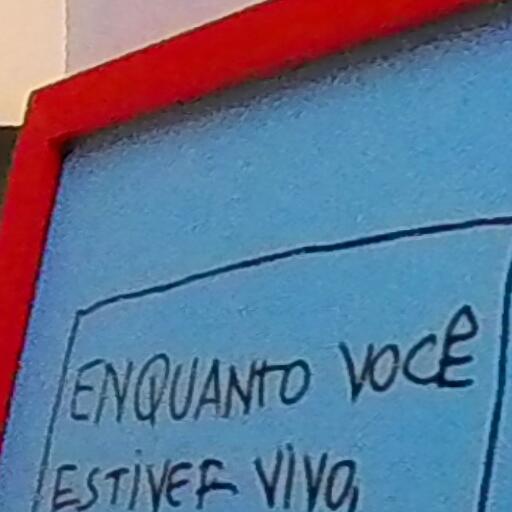 ENQUANTO VOCÊ
ESTIVER VIVO,